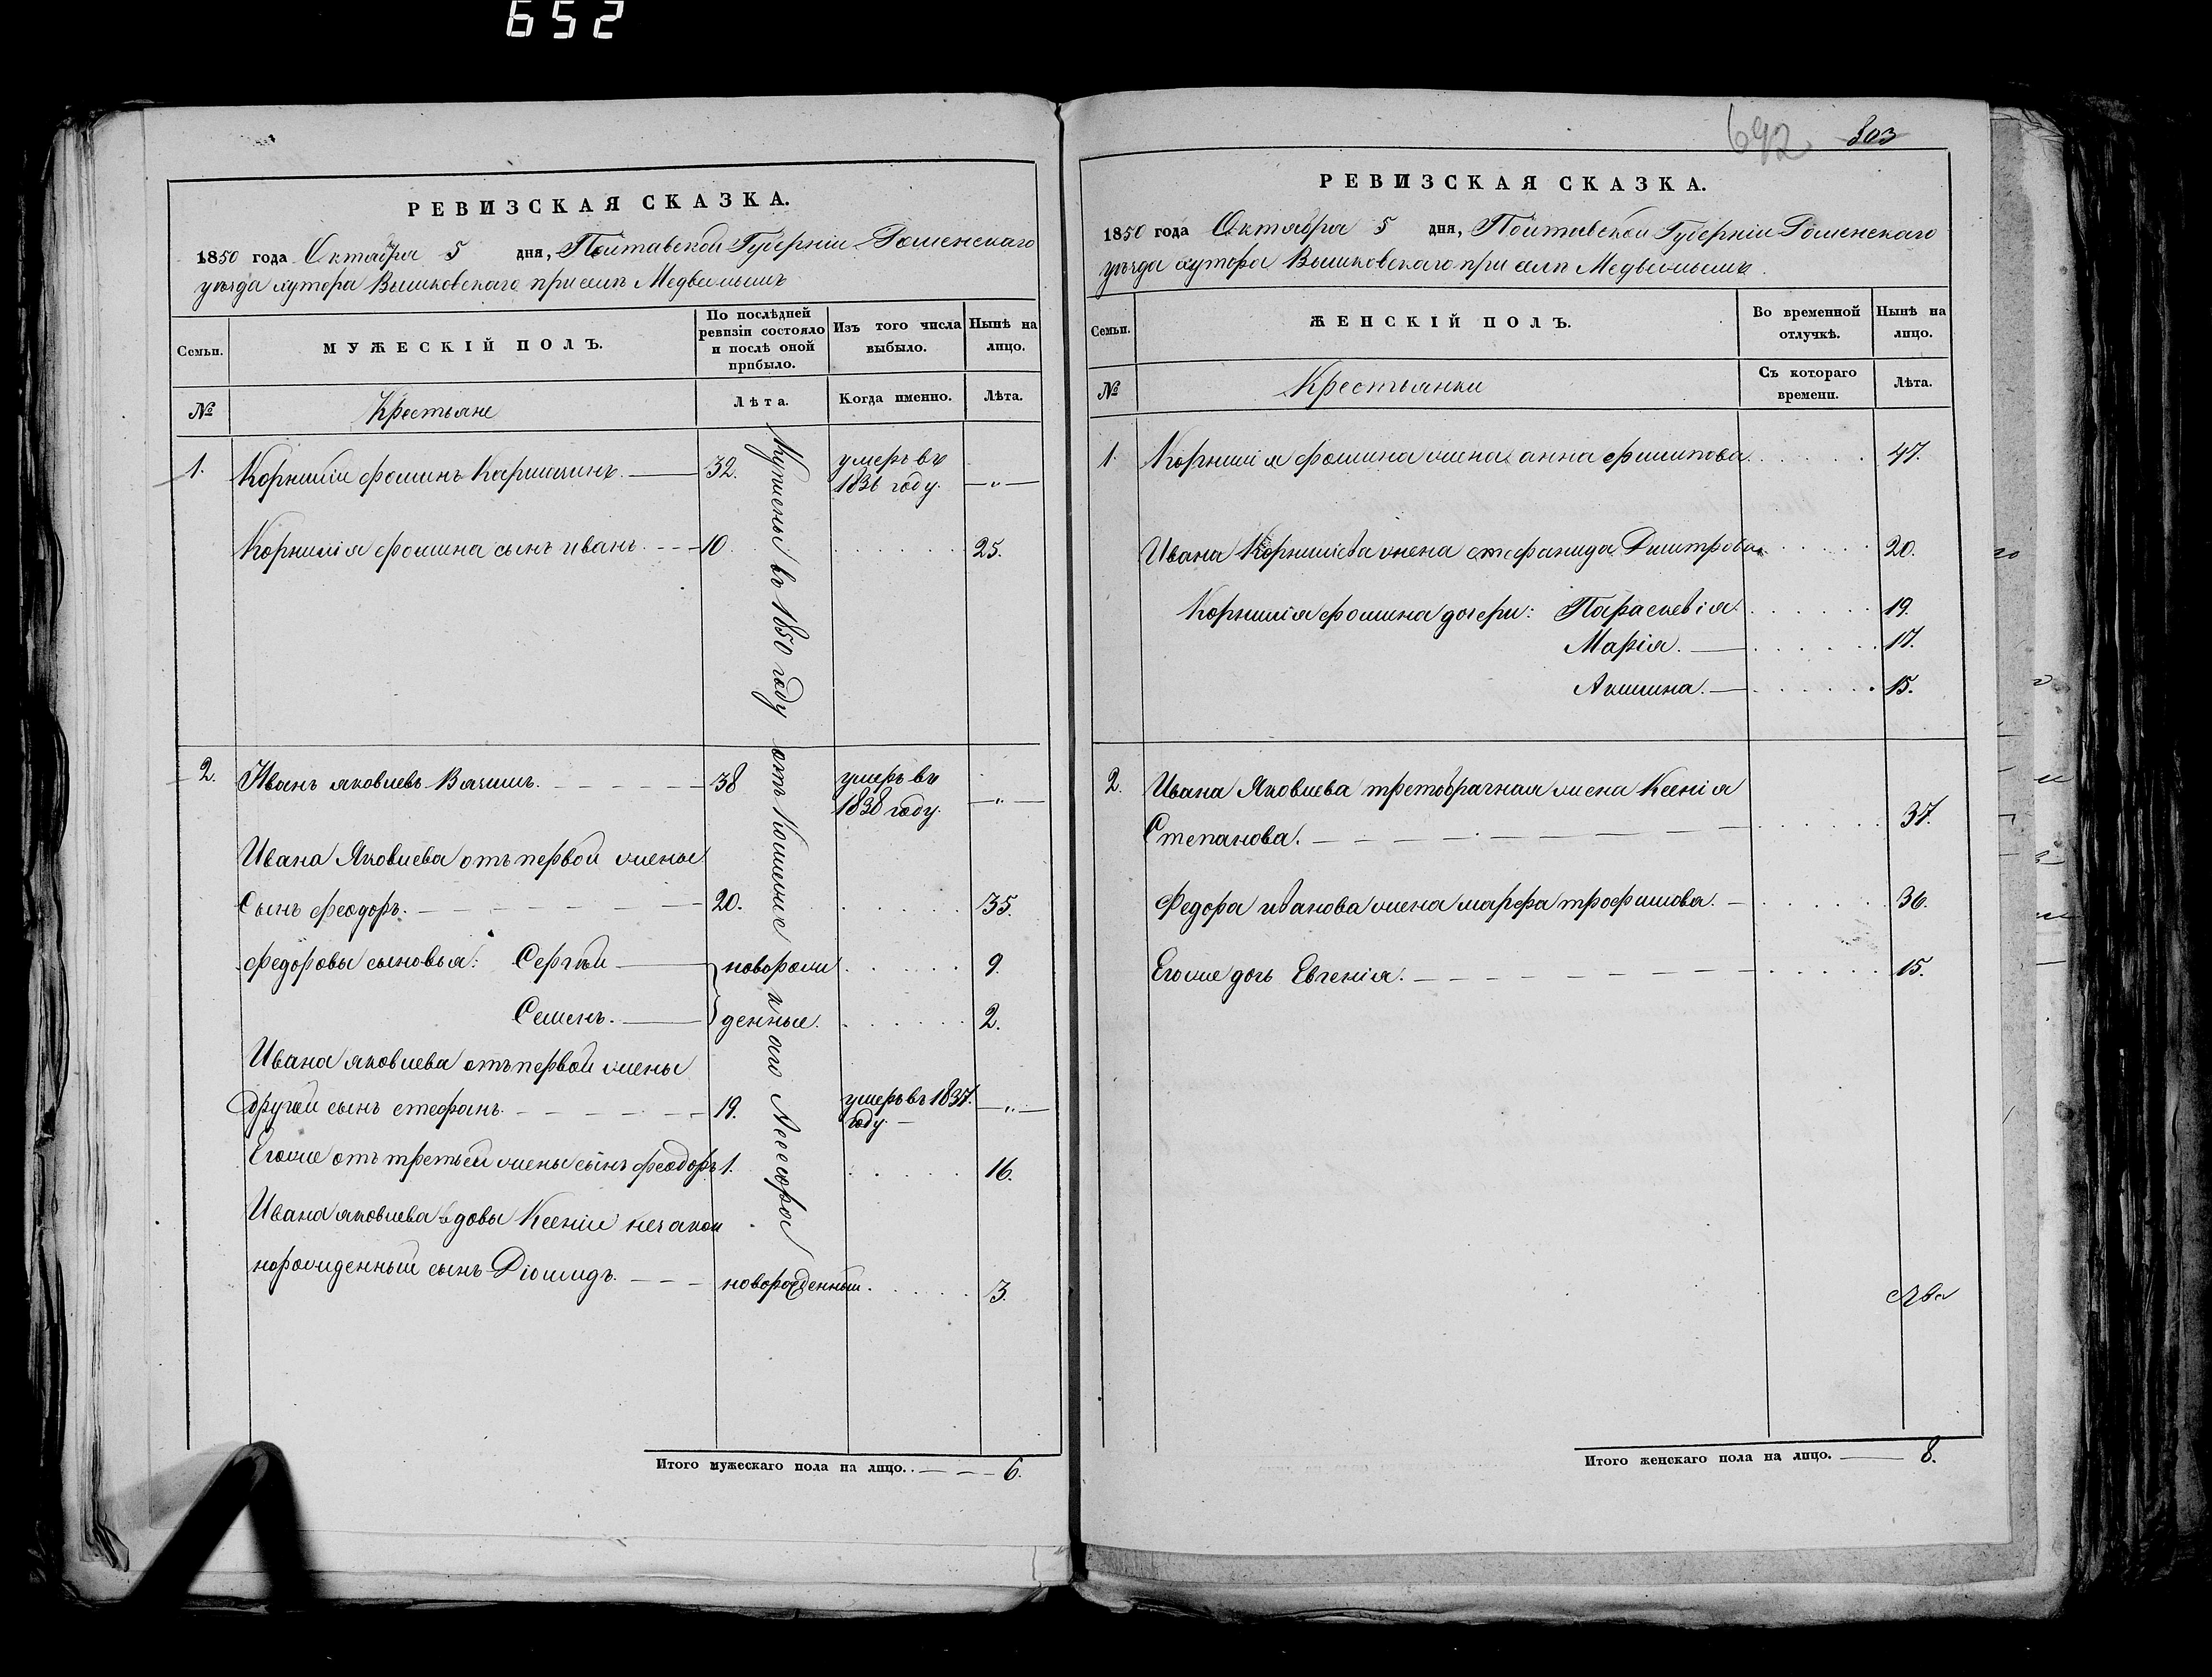 652
РЕВИЗСКАЯ СКАЗКА.
1850 года Октября 5 дня, Полтавской Губерніи Роменскаго
уѣзда хутора Вышковскаго при селѣ Медвежьемъ
Семьи.
МУЖЕСКІЙ ПОЛЪ.
По послѣдней ревизіи состояло и послѣ оной прибыло.
Изъ того числа выбыло.
Нынѣ на лицо.
№
Крестьяне
Лѣта.
Когда именно.
Лѣта.
1. Корнилій Фоминъ 32. умеръ въ
1836 году. — " —
Корнилія Фомина сынъ Иванъ. 10. 25.
2. Иванъ Яковлевъ 38 умеръ въ
1838 году. — " —
Ивана Яковлева отъ первой жены
Сынъ Феодоръ. 20. 35.
Федоровы сыновья: Сергѣй новорож 9.
Семенъ. денные. 2.
Ивана Яковлева отъ первой жены
другой сынъ Стефанъ. 19. умеръ въ 1837.
году. — " —
Егоже отъ третьей жены сынъ Феодоръ 1. 16.
Ивана Яковлева вдовы Ксеніи незакон
норожденный сынъ Діомидъ. новорожденный. 3.
Куплены въ 1850 году отъ Асессора
Итого мужескаго пола на лицо. 6.
692 803
РЕВИЗСКАЯ СКАЗКА.
1850 года Октября 5 дня, Полтавской Губерніи Роменскаго
уѣзда хутора Вышковскаго при селѣ Медвежьемъ.
Семьи.
ЖЕНСКІЙ ПОЛЪ.
Во временной отлучкѣ.
Нынѣ на лицо.
№
Крестьянки
Съ котораго времени.
Лѣта.
1. Корнилія Фомина жена Анна Филипова 47.
Ивана Корниліева жена Стефанида Дмитрова 20.
Корнилія Фомина дочери: Параскевія. 19.
Марія. 17.
Акилина. 15.
2. Ивана Яковлева третобрачная жена Ксенія
Степанова. 37.
Федора Иванова жена Марфа Трофимова. 36.
Егоже дочь Евгенія. 15.
Итого женскаго пола на лицо. 8.